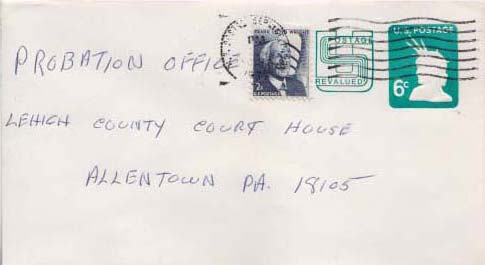 PROBATION OFFICE
FRANK LLOYD WRIGHT
2¢
U.S. POSTAGE
POSTAGE
REVALUED
U.S. POSTAGE
6c
LEHIGH COUNTY COURT HOUSE
ALLENTOWN PA. 18105